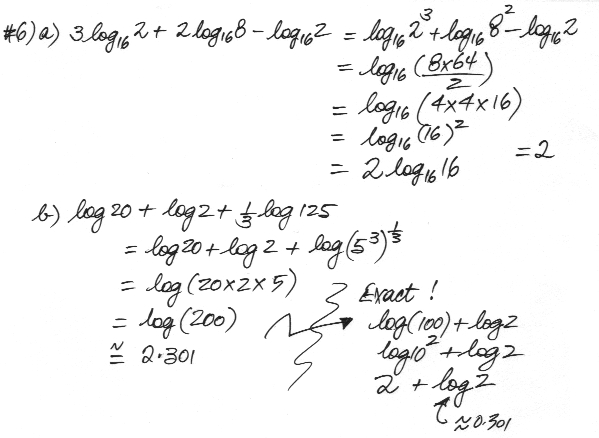 #6) a) 3 log₁₆ 2 + 2 log₁₆ 8 − log₁₆ 2 = log₁₆ 2³ + log₁₆ 8² − log₁₆ 2
= log₁₆ (8×64 / 2)
= log₁₆ (4×4×16)
= log₁₆ (16)²
= 2 log₁₆ 16 = 2
b) log 20 + log 2 + 1/3 log 125
= log 20 + log 2 + log (5³)^(1/3)
= log (20×2×5)
= log (200)
≅ 2.301
Exact !
log(100) + log 2
log 10² + log 2
2 + log 2
≈ 0.301